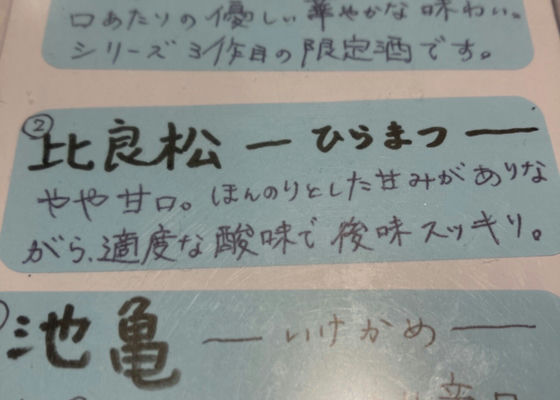 口あたりの優しい華やかな味わい。
シリーズ3作目の限定酒です。
②
比良松 ー ひらまつ ー
やや甘口。ほんのりとした甘みがありな
がら、適度な酸味で後味スッキリ。
池亀 ー いけかめ ー
辛口